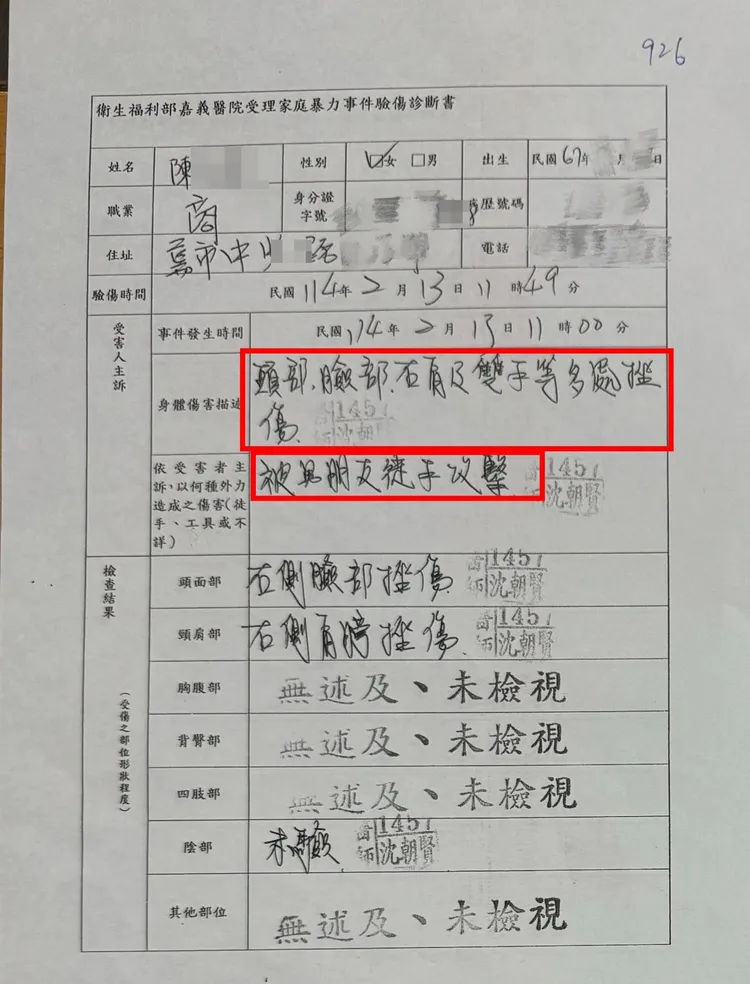 926
衛生福利部嘉義醫院受理家庭暴力事件驗傷診斷書
姓名 陳 性別 ☑女 □男 出生 民國67年 月 日
職業 商 身分證字號 歷號碼
住址 嘉市中 路 電話
驗傷時間 民國114年2月13日11時49分
受害人主訴
事件發生時間 民國114年2月13日11時00分
身體傷害描述 頭部、臉部、右肩及雙手等多處挫
傷
1451
沈朝賢
依受害者主訴,以何種外力造成之傷害(徒手、工具或不詳) 被男朋友徒手攻擊
1451
沈朝賢
檢查結果
(受傷之部位形狀程度)
頭面部 右側臉部挫傷
1451
沈朝賢
頸肩部 右側肩膀挫傷
1451
沈朝賢
胸腹部 無述及、未檢視
背臀部 無述及、未檢視
四肢部 無述及、未檢視
陰部 未驗
1451
沈朝賢
其他部位 無述及、未檢視